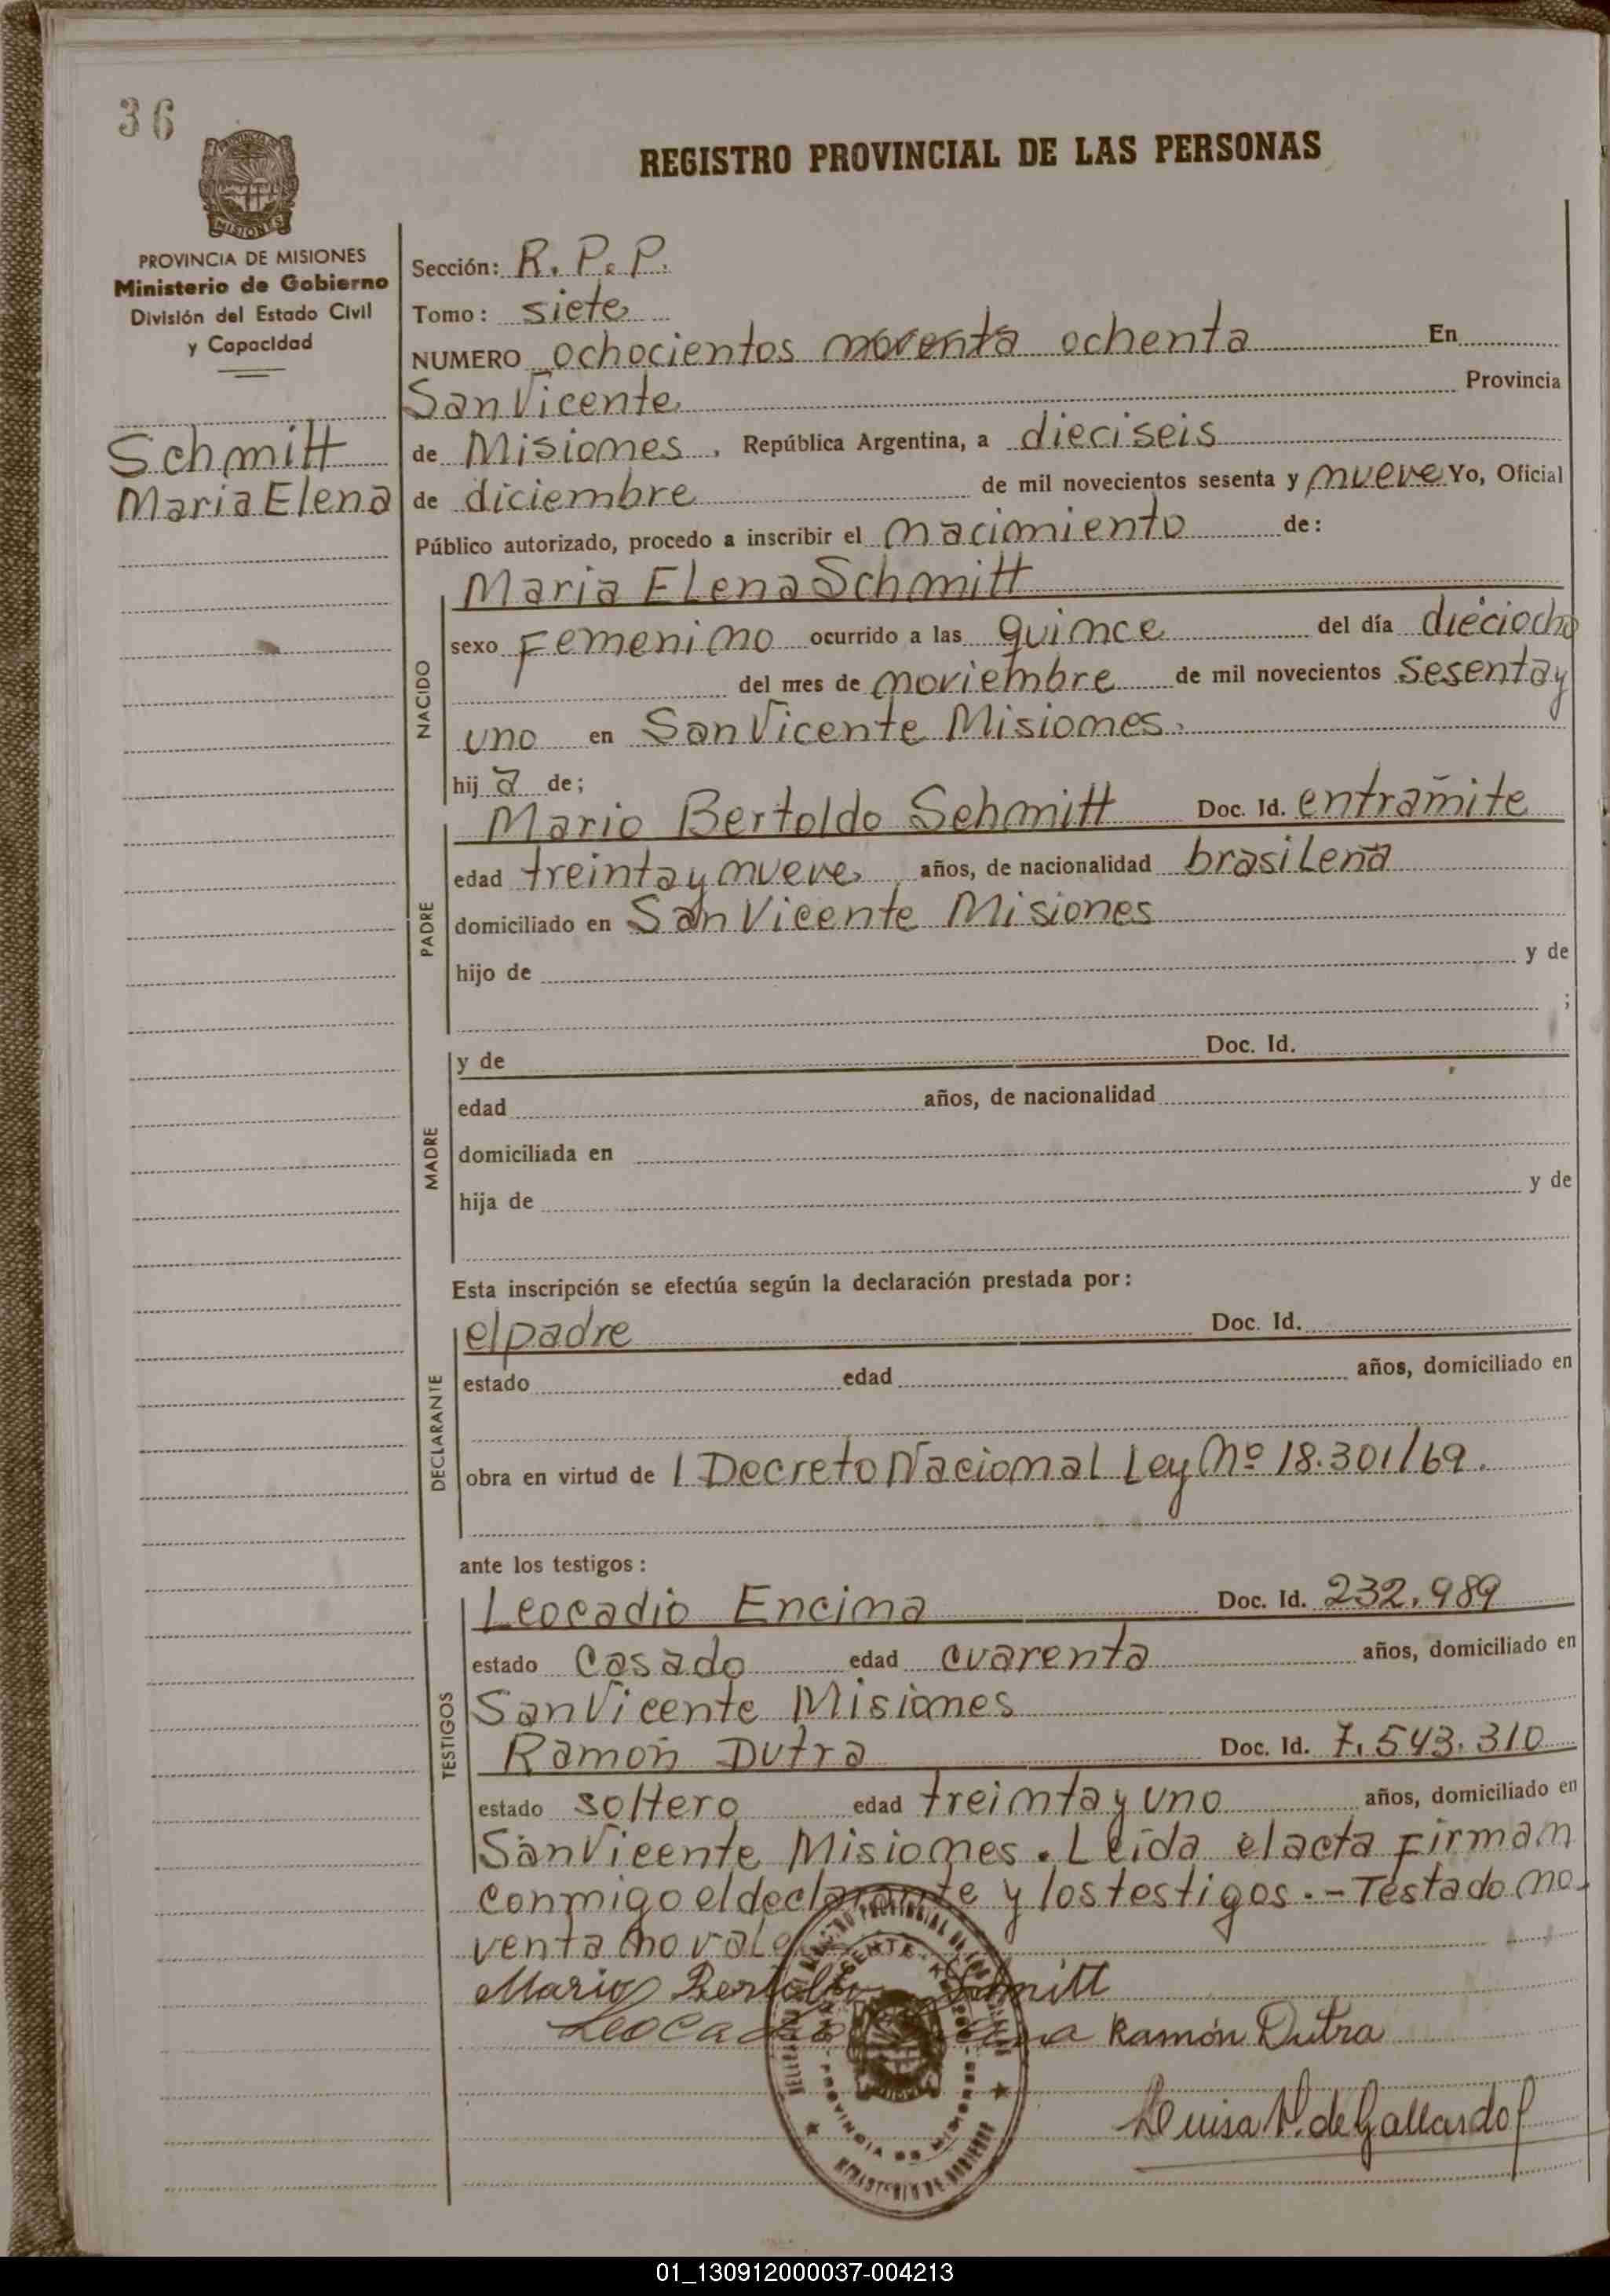 36
REGISTRO PROVINCIAL DE LAS PERSONAS
MISIONES
PROVINCIA DE MISIONES
Ministerio de Gobierno
División del Estado Civil
y Capacidad
Schmitt
Maria Elena
Sección: R. P. P.
Tomo: siete
NUMERO ochocientos noventa ochenta En
San Vicente Provincia
de Misiones, República Argentina, a dieciseis
de diciembre de mil novecientos sesenta y nueve Yo, Oficial
Público autorizado, procedo a inscribir el nacimiento de:
NACIDO
Maria Elena Schmitt
sexo Femenino ocurrido a las quince del día dieciocho
del mes de noviembre de mil novecientos sesenta y
uno en San Vicente Misiones.
hij a de;
PADRE
Mario Bertoldo Schmitt Doc. Id. en tramite
edad treinta y nueve años, de nacionalidad brasilena
domiciliado en San Vicente Misiones
hijo de y de
;
MADRE
y de Doc. Id.
edad años, de nacionalidad
domiciliada en
hija de y de
Esta inscripción se efectúa según la declaración prestada por:
DECLARANTE
el padre Doc. Id.
estado edad años, domiciliado en
obra en virtud de l Decreto Nacional Ley Nº 18.301/69.
ante los testigos:
TESTIGOS
Leocadio Encina Doc. Id. 232.989
estado casado edad cuarenta años, domiciliado en
San Vicente Misiones
Ramón Dutra Doc. Id. 7.543.310
estado soltero edad treinta y uno años, domiciliado en
San Vicente Misiones. Leída el acta firman
conmigo el declarante y los testigos.- Testado no-
venta no vale
Mario Bertoldo Schmitt
Leocadio Encina Ramón Dutra
PROVINCIA DE MISIONES
MINISTERIO DE GOBIERNO
Luisa V. de Gallardo
01_130912000037-004213